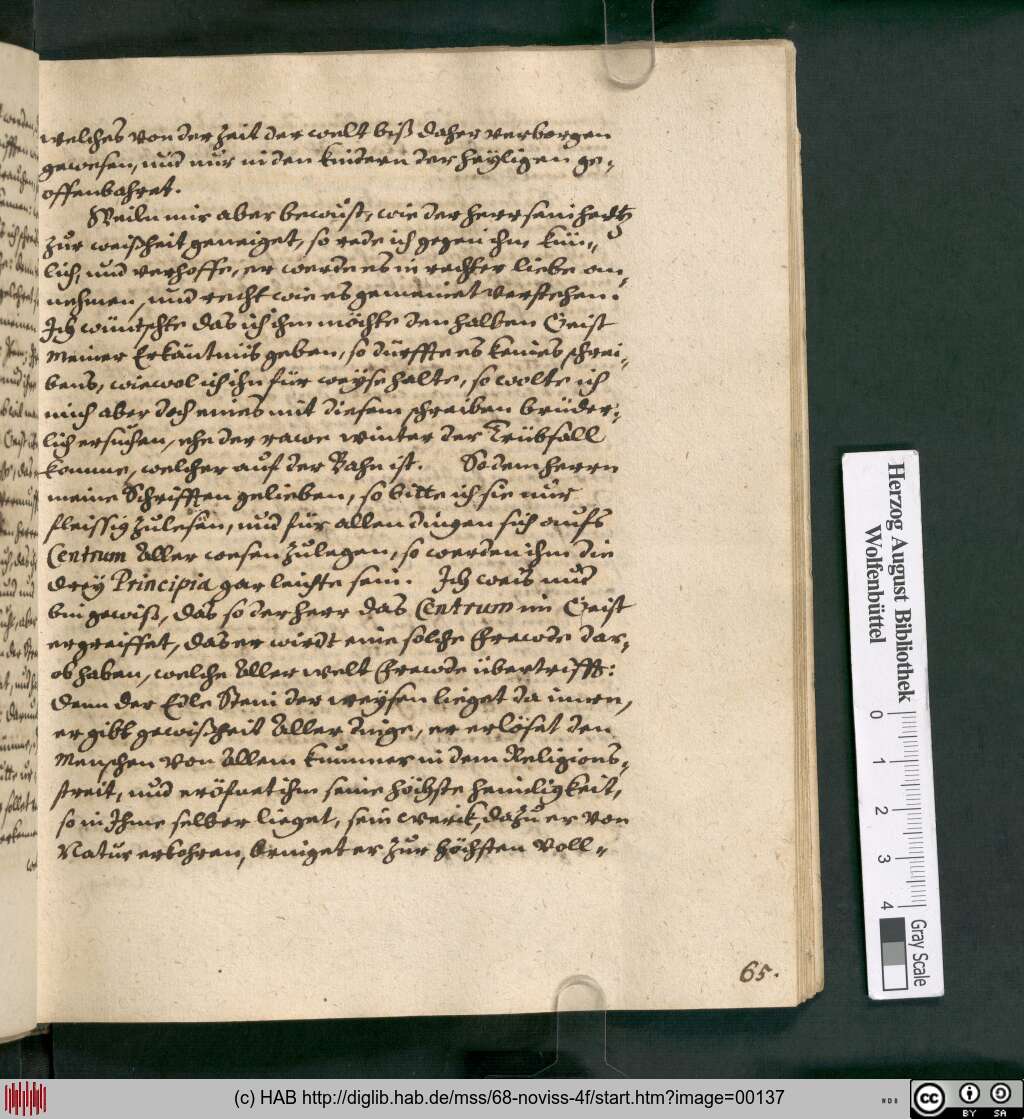 welches von der Zeit der welt biß daher verborgen
gewesen, und nur in den kindern der heyligen ge-
offenbahret.
Weiln mir aber bewust, wie der herr sein hertz
zur weißheit geneiget, so rede ich gegen ihm kün-
lich, und verhoffe, er werde es in rechter liebe an-
nehmen, und recht wie es gemeinet verstehen.
Ich wüntschte das ich ihm möchte den halben Geist
Meiner Erkäntnüs geben, so dürffte es keines schrei-
bens, wiewol ich ihn für weyse halte, so wolte ich
mich aber doch eines mit diesem schreiben brüder-
lich ersuchen, ehe der rawe winter der Trübsall
komme, welcher auf der Bahn ist. So dem herrn
meine Schrifften gelieben, so bitte ich sie nur
fleissig zulesen, und für allen dingen sich aufs
Centrum Aller wesen zulegen, so werden ihm die
drey Principia gar leichte sein. Ich weis und
bin gewiß, das so der herr das Centrum im Geist
ergreiffet, das er wirdt eine solche Frewde dar-
ob haben, welche Aller welt Frewde übertrifft:
Denn der Edle Stein der weysen lieget da innen,
er gibt gewißheit Aller dinge, er erlöset den
Menschen von Allem kummer in dem Religions-
streit, und eröfnet ihm seine höchste heimligkeit,
so in Ihme selber lieget, sein werck, dazu er von
Natur erbohren, bringet er zur höchsten Voll-
65.
Herzog August Bibliothek
Wolfenbüttel
0 1 2 3 4
Gray Scale
(c) HAB http://diglib.hab.de/mss/68-noviss-4f/start.htm?image=00137
cc BY SA